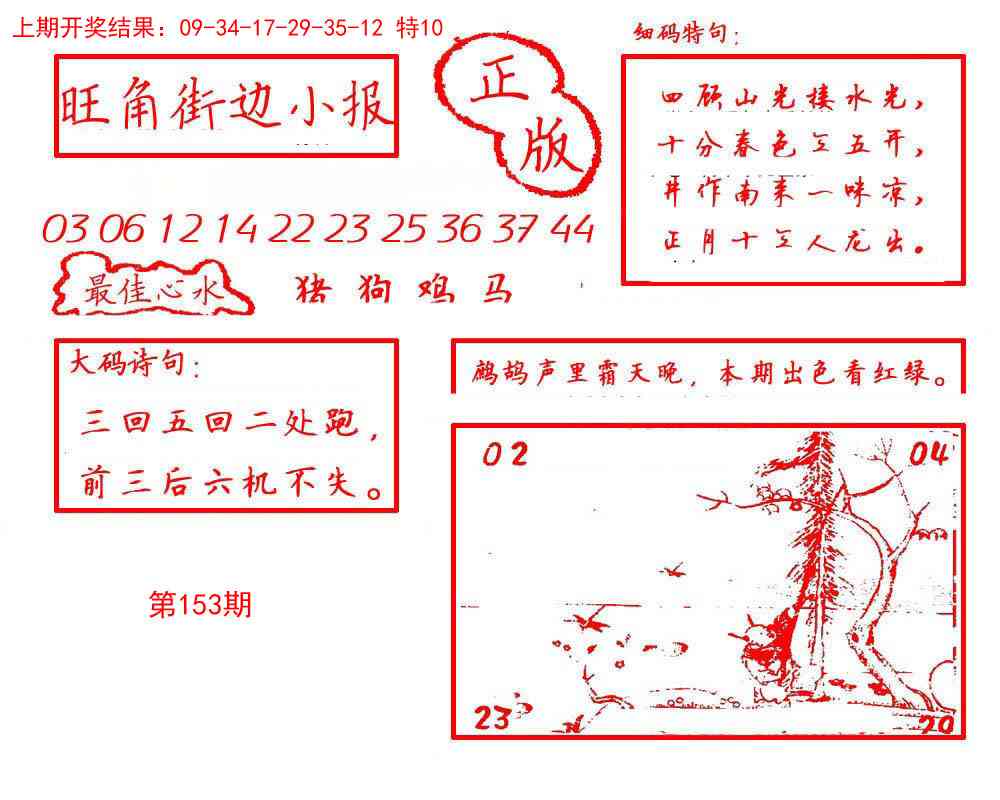 上期开奖结果：09-34-17-29-35-12 特10
旺角街边小报
正版
细码特句：
四顾山光接水光，
十分春色三五开，
井作南来一味凉，
正月十三人龙出。
03 06 12 14 22 23 25 36 37 44
最佳心水
猪 狗 鸡 马
大码诗句：
三回五回二处跑，
前三后六机不失。
鹧鸪声里霜天晚，本期出色看红绿。
02
04
23
20
第153期